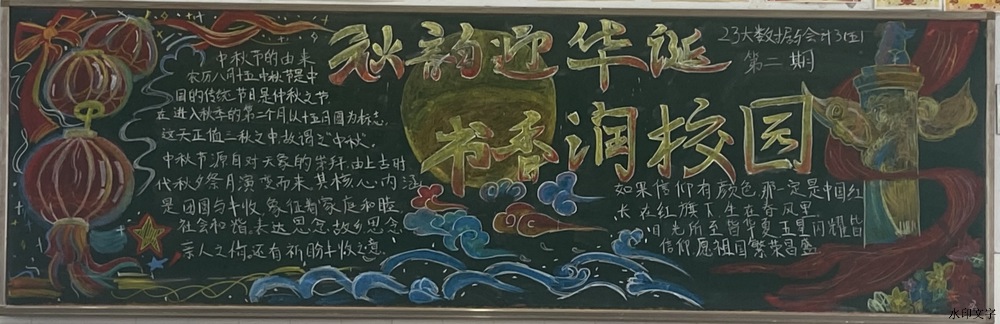 秋韵迎华诞
书香润校园
23大数据与会计3(五)
第二期
中秋节的由来
农历八月十五中秋节是中
国的传统节日是仲秋之节
在进入秋季的第二个月以十五月圆为标志
这天正值三秋之中故谓之"中秋"
中秋节源自对天象的崇拜由上古时
代秋夕祭月演变而来其核心内涵
是团圆与丰收象征着家庭和睦
社会和谐表达思念故乡思念
亲人之情还有祈盼丰收之意
如果信仰有颜色那一定是中国红
长在红旗下生在春风里
目光所至皆华夏五星闪耀皆
信仰愿祖国繁荣昌盛
水印文字